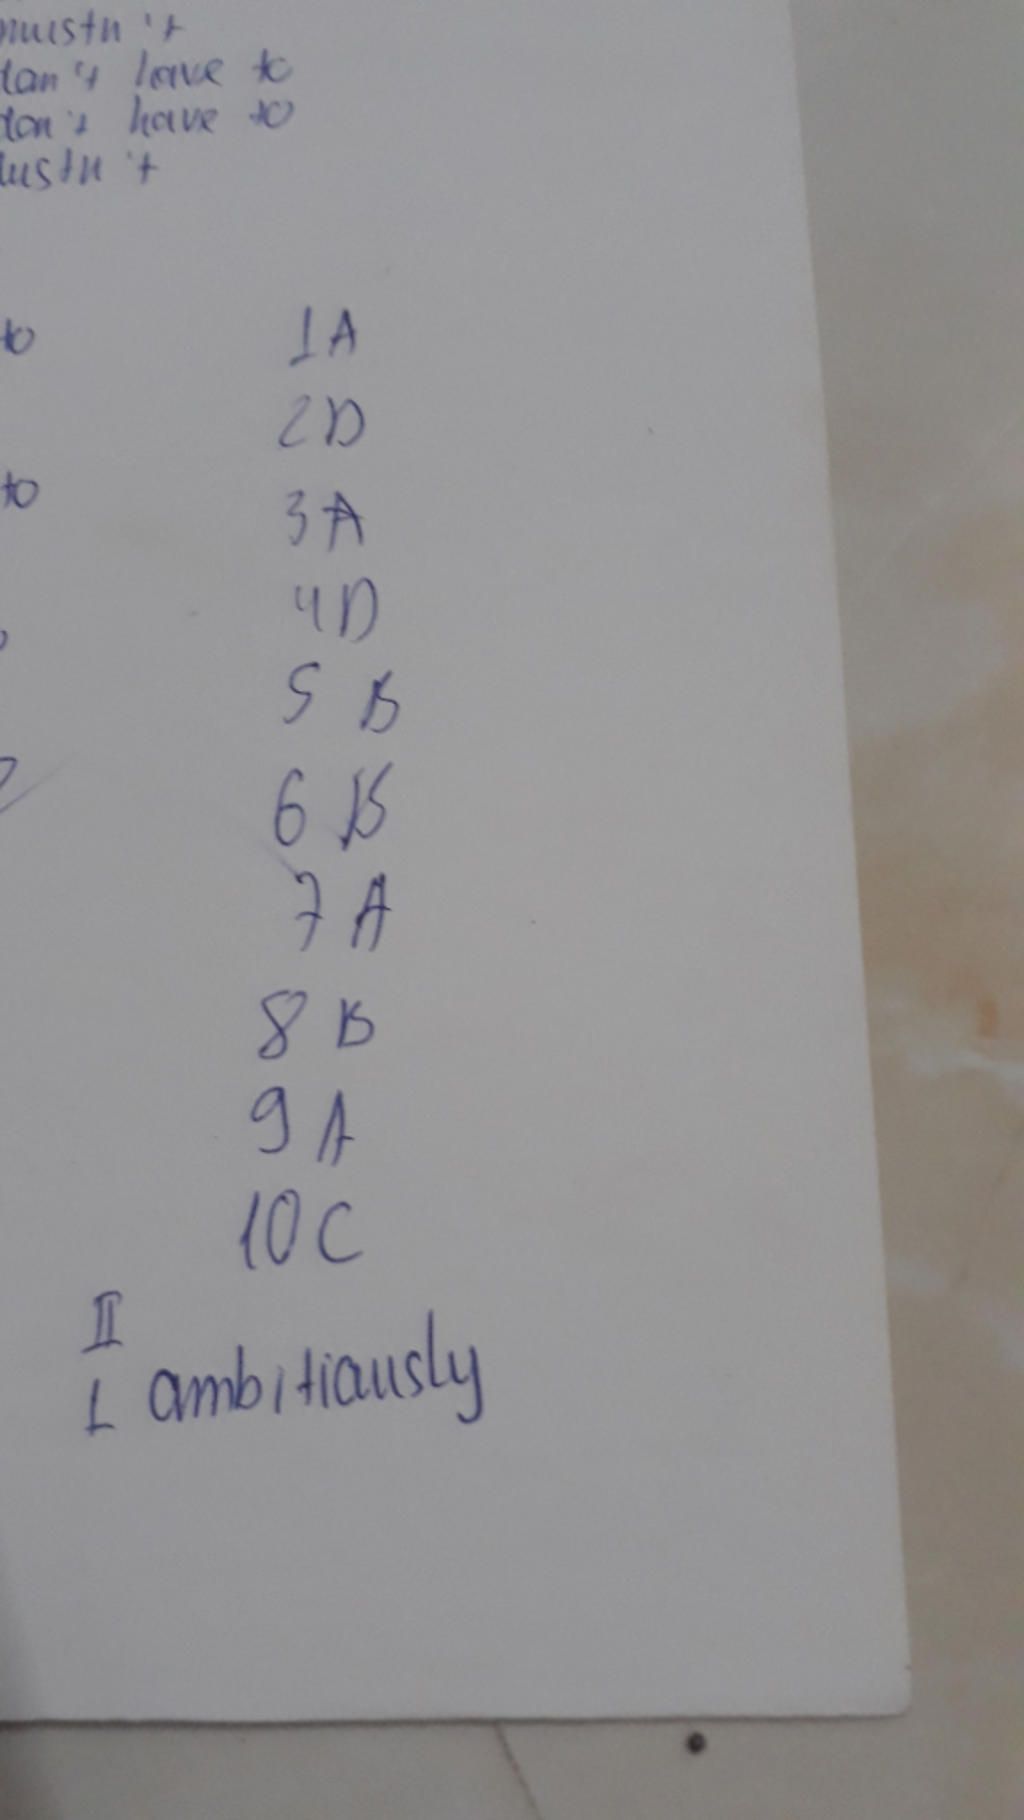 mustn't
don't have to
don't have to
Mustn't
to
1 A
2 D
to
3 A
4 D
5 B
6 B
7 A
8 B
9 A
10 C
II
1 ambitiausly